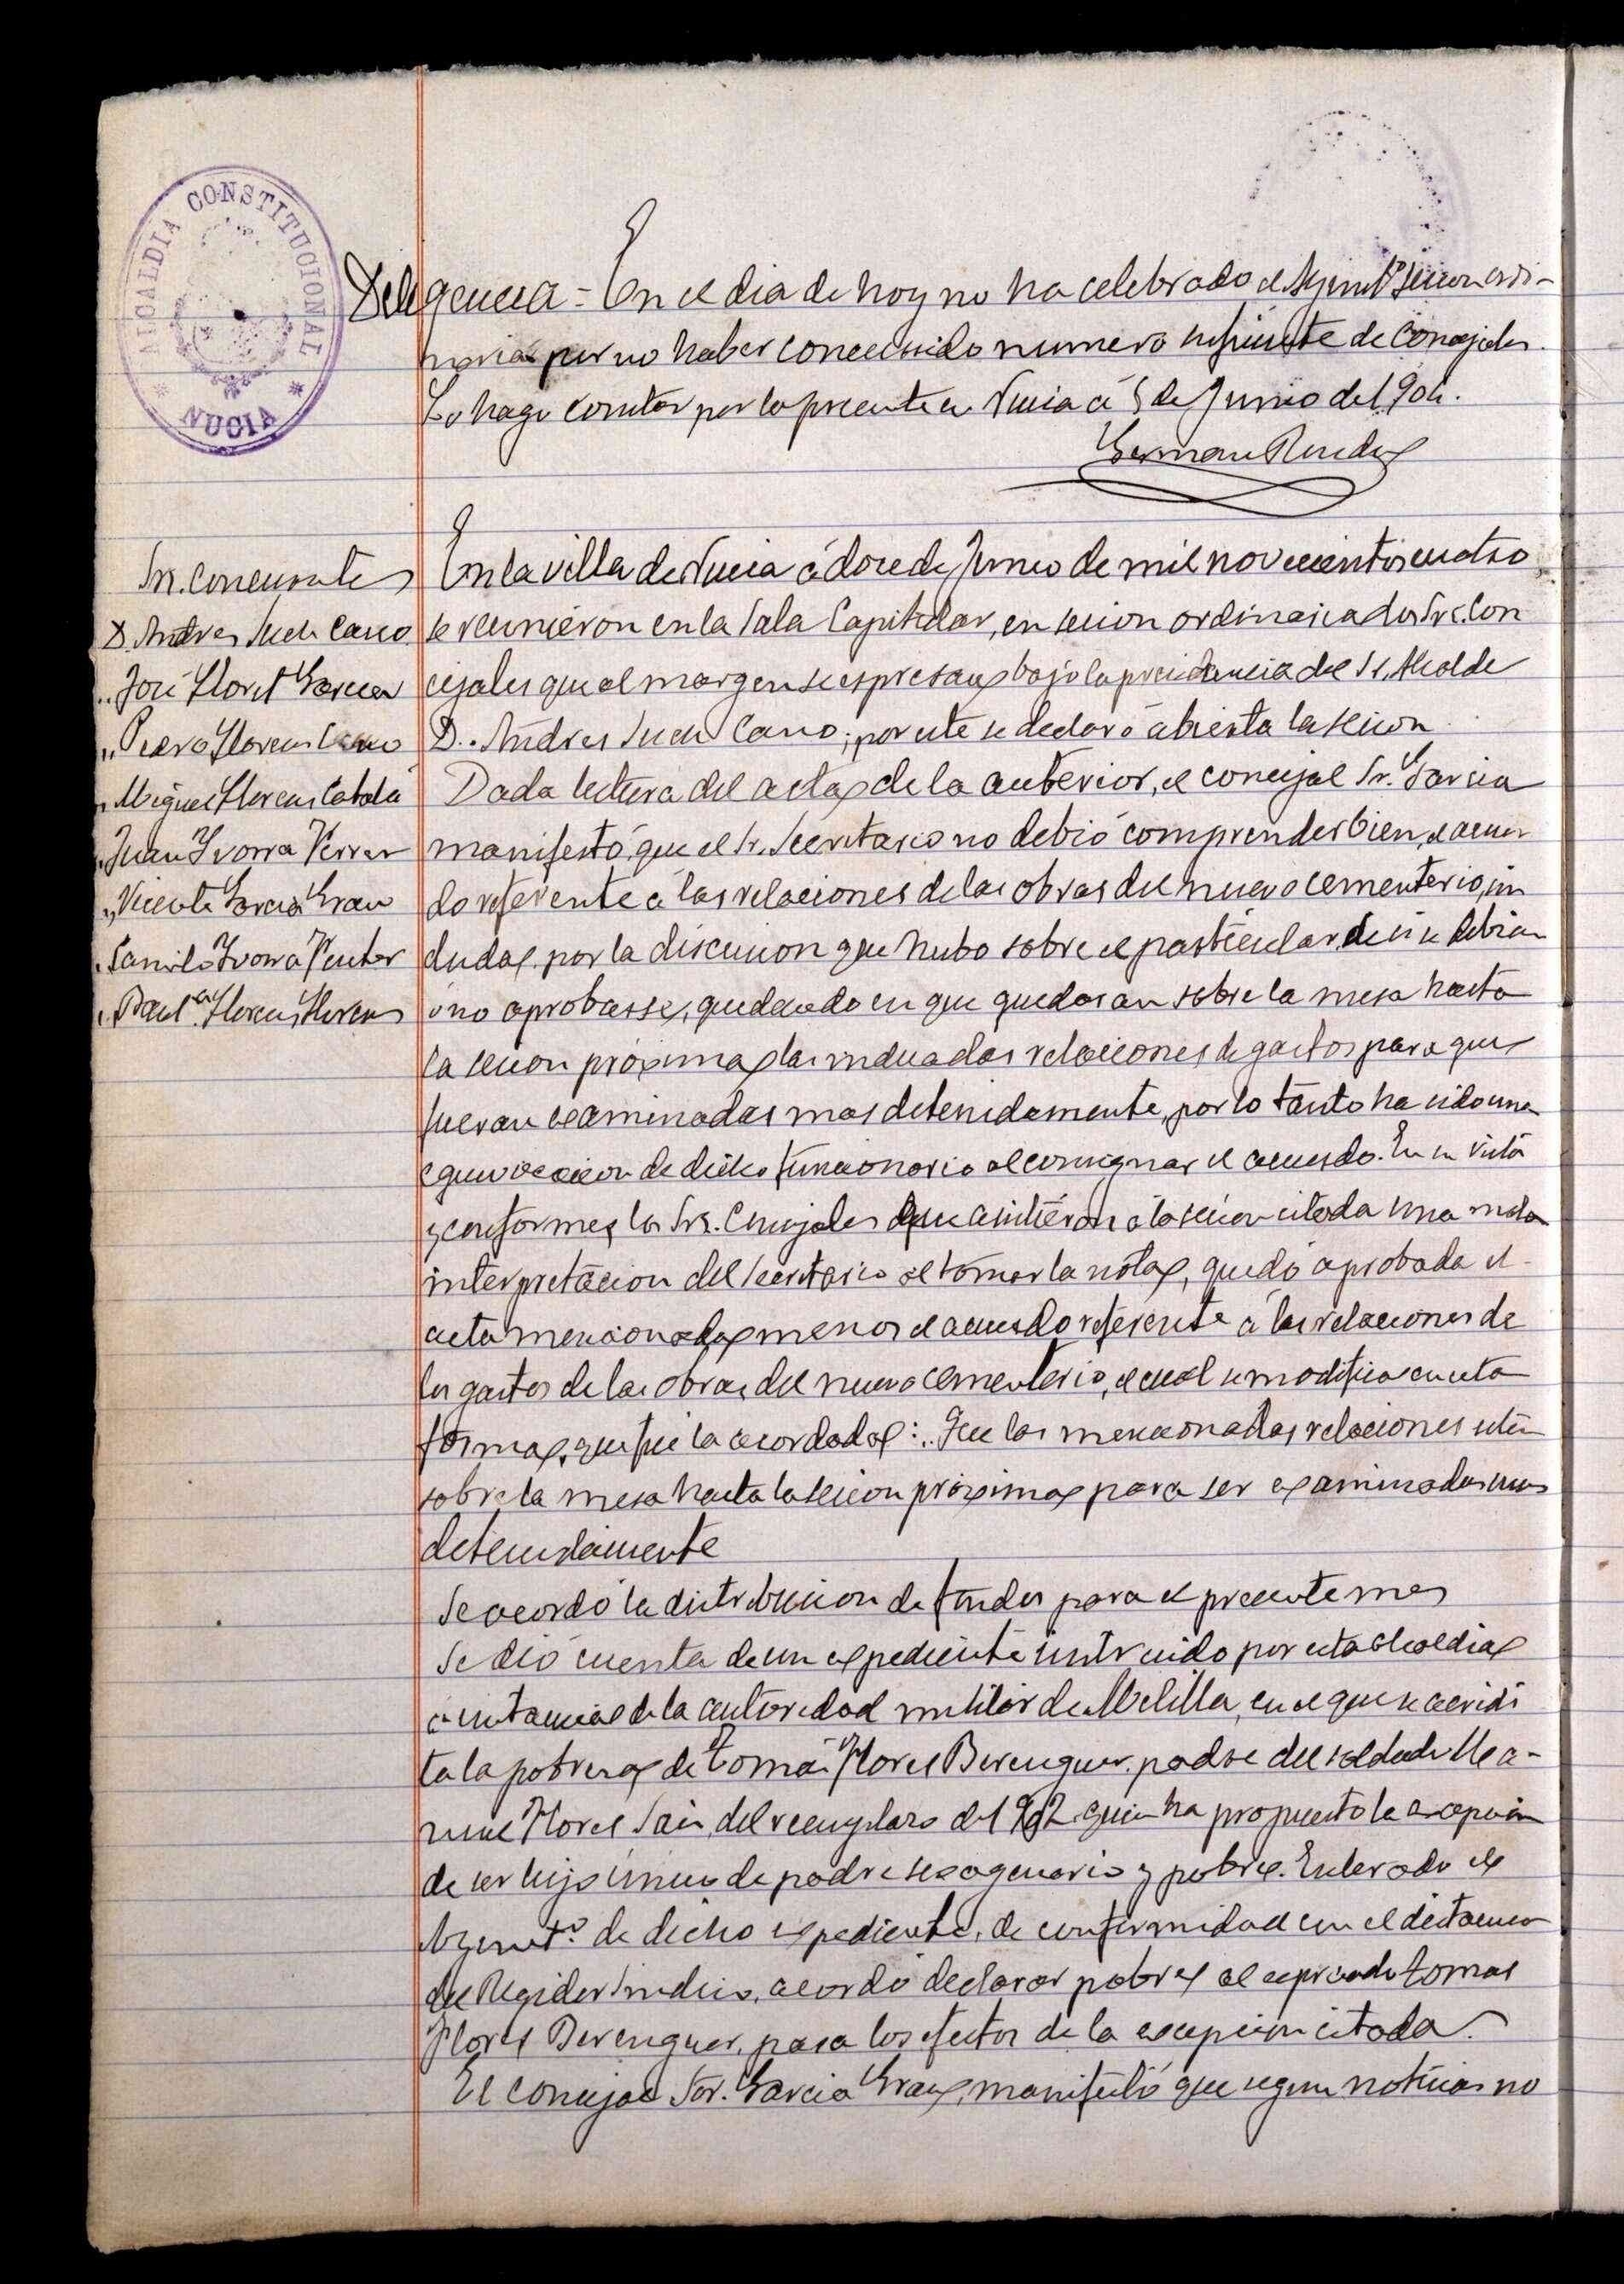 ALCALDIA CONSTITUCIONAL
* NUCIA *
Diligencia = En el dia de hoy no ha celebrado el Ayunt.º sesion ordi-
naria por no haber concurrido numero suficiente de Concejales.
Lo hago constar por la presente en Nucia á 5 de Junio de 1904.
German
Sres. Concurrentes
D. Andres Such Cano
.. José Lloret Garcia
,, Pedro Llorens Cano
,, Miguel Llorens Catalá
,, Juan Yvorra Ferrer
,, Vicente Garcia Grau
,, Camilo Yvorra
,, Llorens Llorens
En la villa de Nucia á doce de Junio de mil novecientos cuatro,
se reunieron en la Sala Capitular, en sesion ordinaria los Sres. Con
cejales que al margen se espresan bajo la presidencia del Sr. Alcalde
D. Andres Such Cano; por este se declaró abierta la sesion.
Dada lectura del acta de la anterior, el concejal Sr. Garcia
manifestó que el Sr. Secretario no debió comprender bien, el acuer
do referente á las relaciones de las obras del nuevo cementerio, sin
duda por la discusion que hubo sobre el particular de si se debian
ó no aprobarse, quedando en que quedaran sobre la mesa hasta
la sesion próxima las indicadas relaciones de gastos para que
fueran examinadas mas detenidamente, por lo tanto ha sido una
equivocacion de dicho funcionario al consignar el acuerdo. En su vista
y conformes los Sres. Concejales que asistieron á la sesion citada una mala
interpretacion del Secretario al tomar la nota, quedó aprobada el
acta mencionada menos el acuerdo referente á las relaciones de
los gastos de las obras del nuevo cementerio, el cual se modifica en esta
forma, que fué la acordada: Que las mencionadas relaciones esten
sobre la mesa hasta la sesion próxima para ser examinadas mas
detenidamente
Se acordó la distribucion de fondos para el presente mes
Se dió cuenta de un expediente instruido por esta Alcaldia
á instancia de la autoridad militar de Melilla, en el que se acredi
ta la pobreza de Tomás Flores Berenguer, padre del soldado Ma-
nuel Flores del reemplazo de 1902 quien ha propuesto la excepcion
de ser hijo único de padre sexagenario y pobre. Enterado el
Ayunt.º de dicho expediente, de conformidad con el dictamen
del Regidor Sindico, acordó declarar pobre al espresado Tomas
Flores Berenguer, para los efectos de la excepcion citada.
El concejal Sor. Garcia Grau, manifestó que segun noticias no